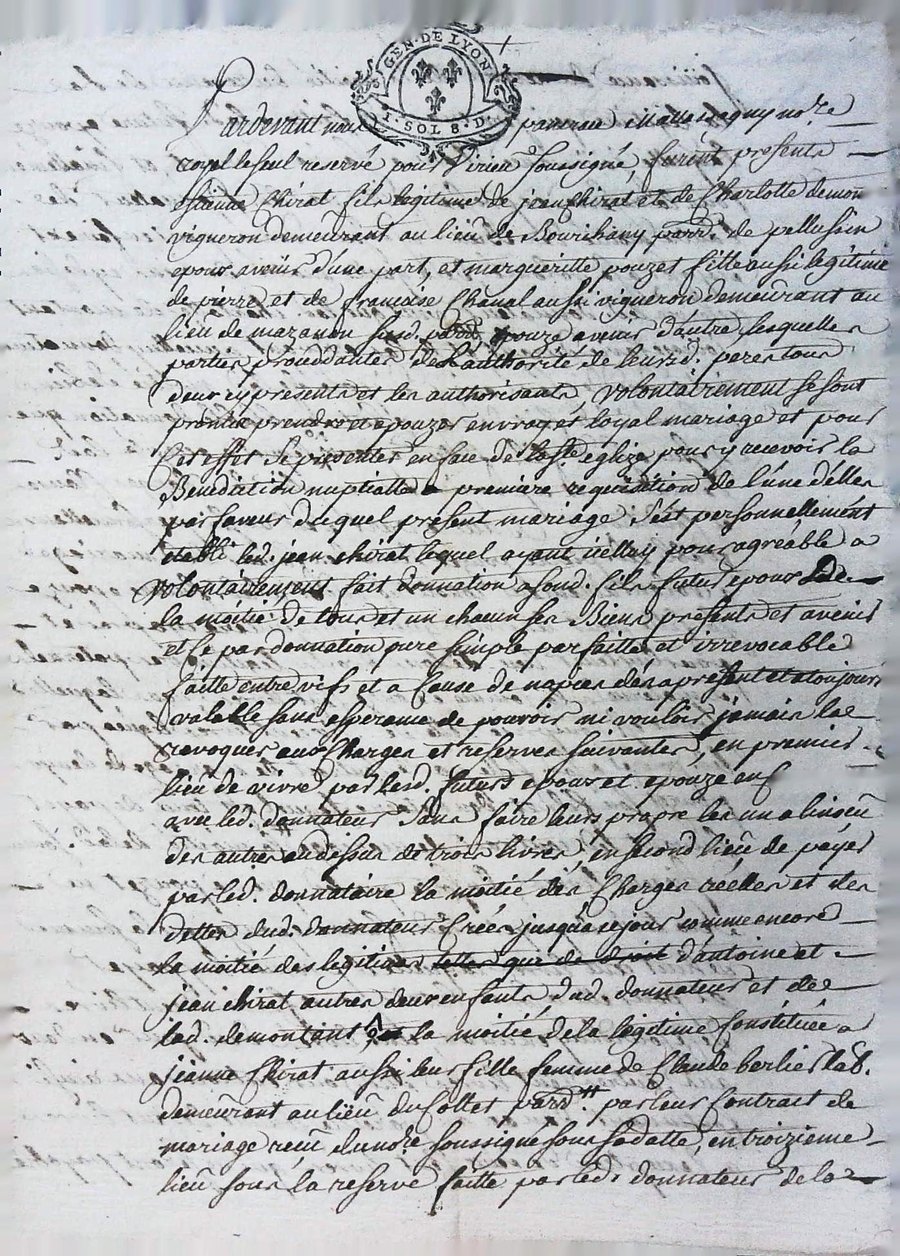 GEN·DE LYON
1·SOL 8·D.
Pardevant nous no.re
royal le seul reservé pour Virieu soussigné, furent presents
Etienne Chirat fils legitime de jean Chirat et de Charlotte demon
vigneron demeurant au lieu de Bourchany parr. de pellussin
epoux avenir d'une part, et margueritte pouzet fille aussi legitime
de pierre et de francoise Chanal aussi vigneron demeurant au
lieu de mazanon susd. parr. epouze avenir d'autre, lesquelles
parties proceddantes de l'authorité de leursd. peres tous
deux icy presents et les authorisants, volontairement se sont
promis prendre et epouzer en vray et loyal mariage et pour
cet effet se presenter en face de la S.te eglize pour y recevoir la
Benediction nuptialle a premiere requisition de l'une d'elles
par faveur duquel present mariage s'est personnellement
etabli led. jean chirat lequel ayant icelluy pour agréable a
volontairement fait donnation aud. fils futur epoux de
la moitié de tous et un chacun ses Biens presents et avenir
et ce par donnation pure simple parfaitte et irrevocable
faitte entre vifs et a cause de nopces dès apresent et atoujours
valable sans esperance de pouvoir ni vouloir jamais la
revoquer aux Charges et reserves suivantes, en premier
lieu de vivre par lesd. futurs epoux et epouze
avec led. donnateur sans faire leurs propre les uns a l'inscu
des autres au dessus de trois livres, en second lieu de payer
par led. donnataire la moitié des Charges réelles et des
dettes dud. donnateur Créés jusqu'a ce jour comme encore
la moitié des legitimes telles que de droit d'antoine et
jean chirat autres deux enfants dud. donnateur et de
lad. demontant & la moitié de la legitime Constituée a
jeanne Chirat aussi leur fille femme de Claude berlier lab.
demeurant au lieu du Collet parr. par leur Contrat de
mariage reçu dud no.re soussigné sous sa datte, en troizieme
lieu sous la reserve faitte par led. donnateur de la